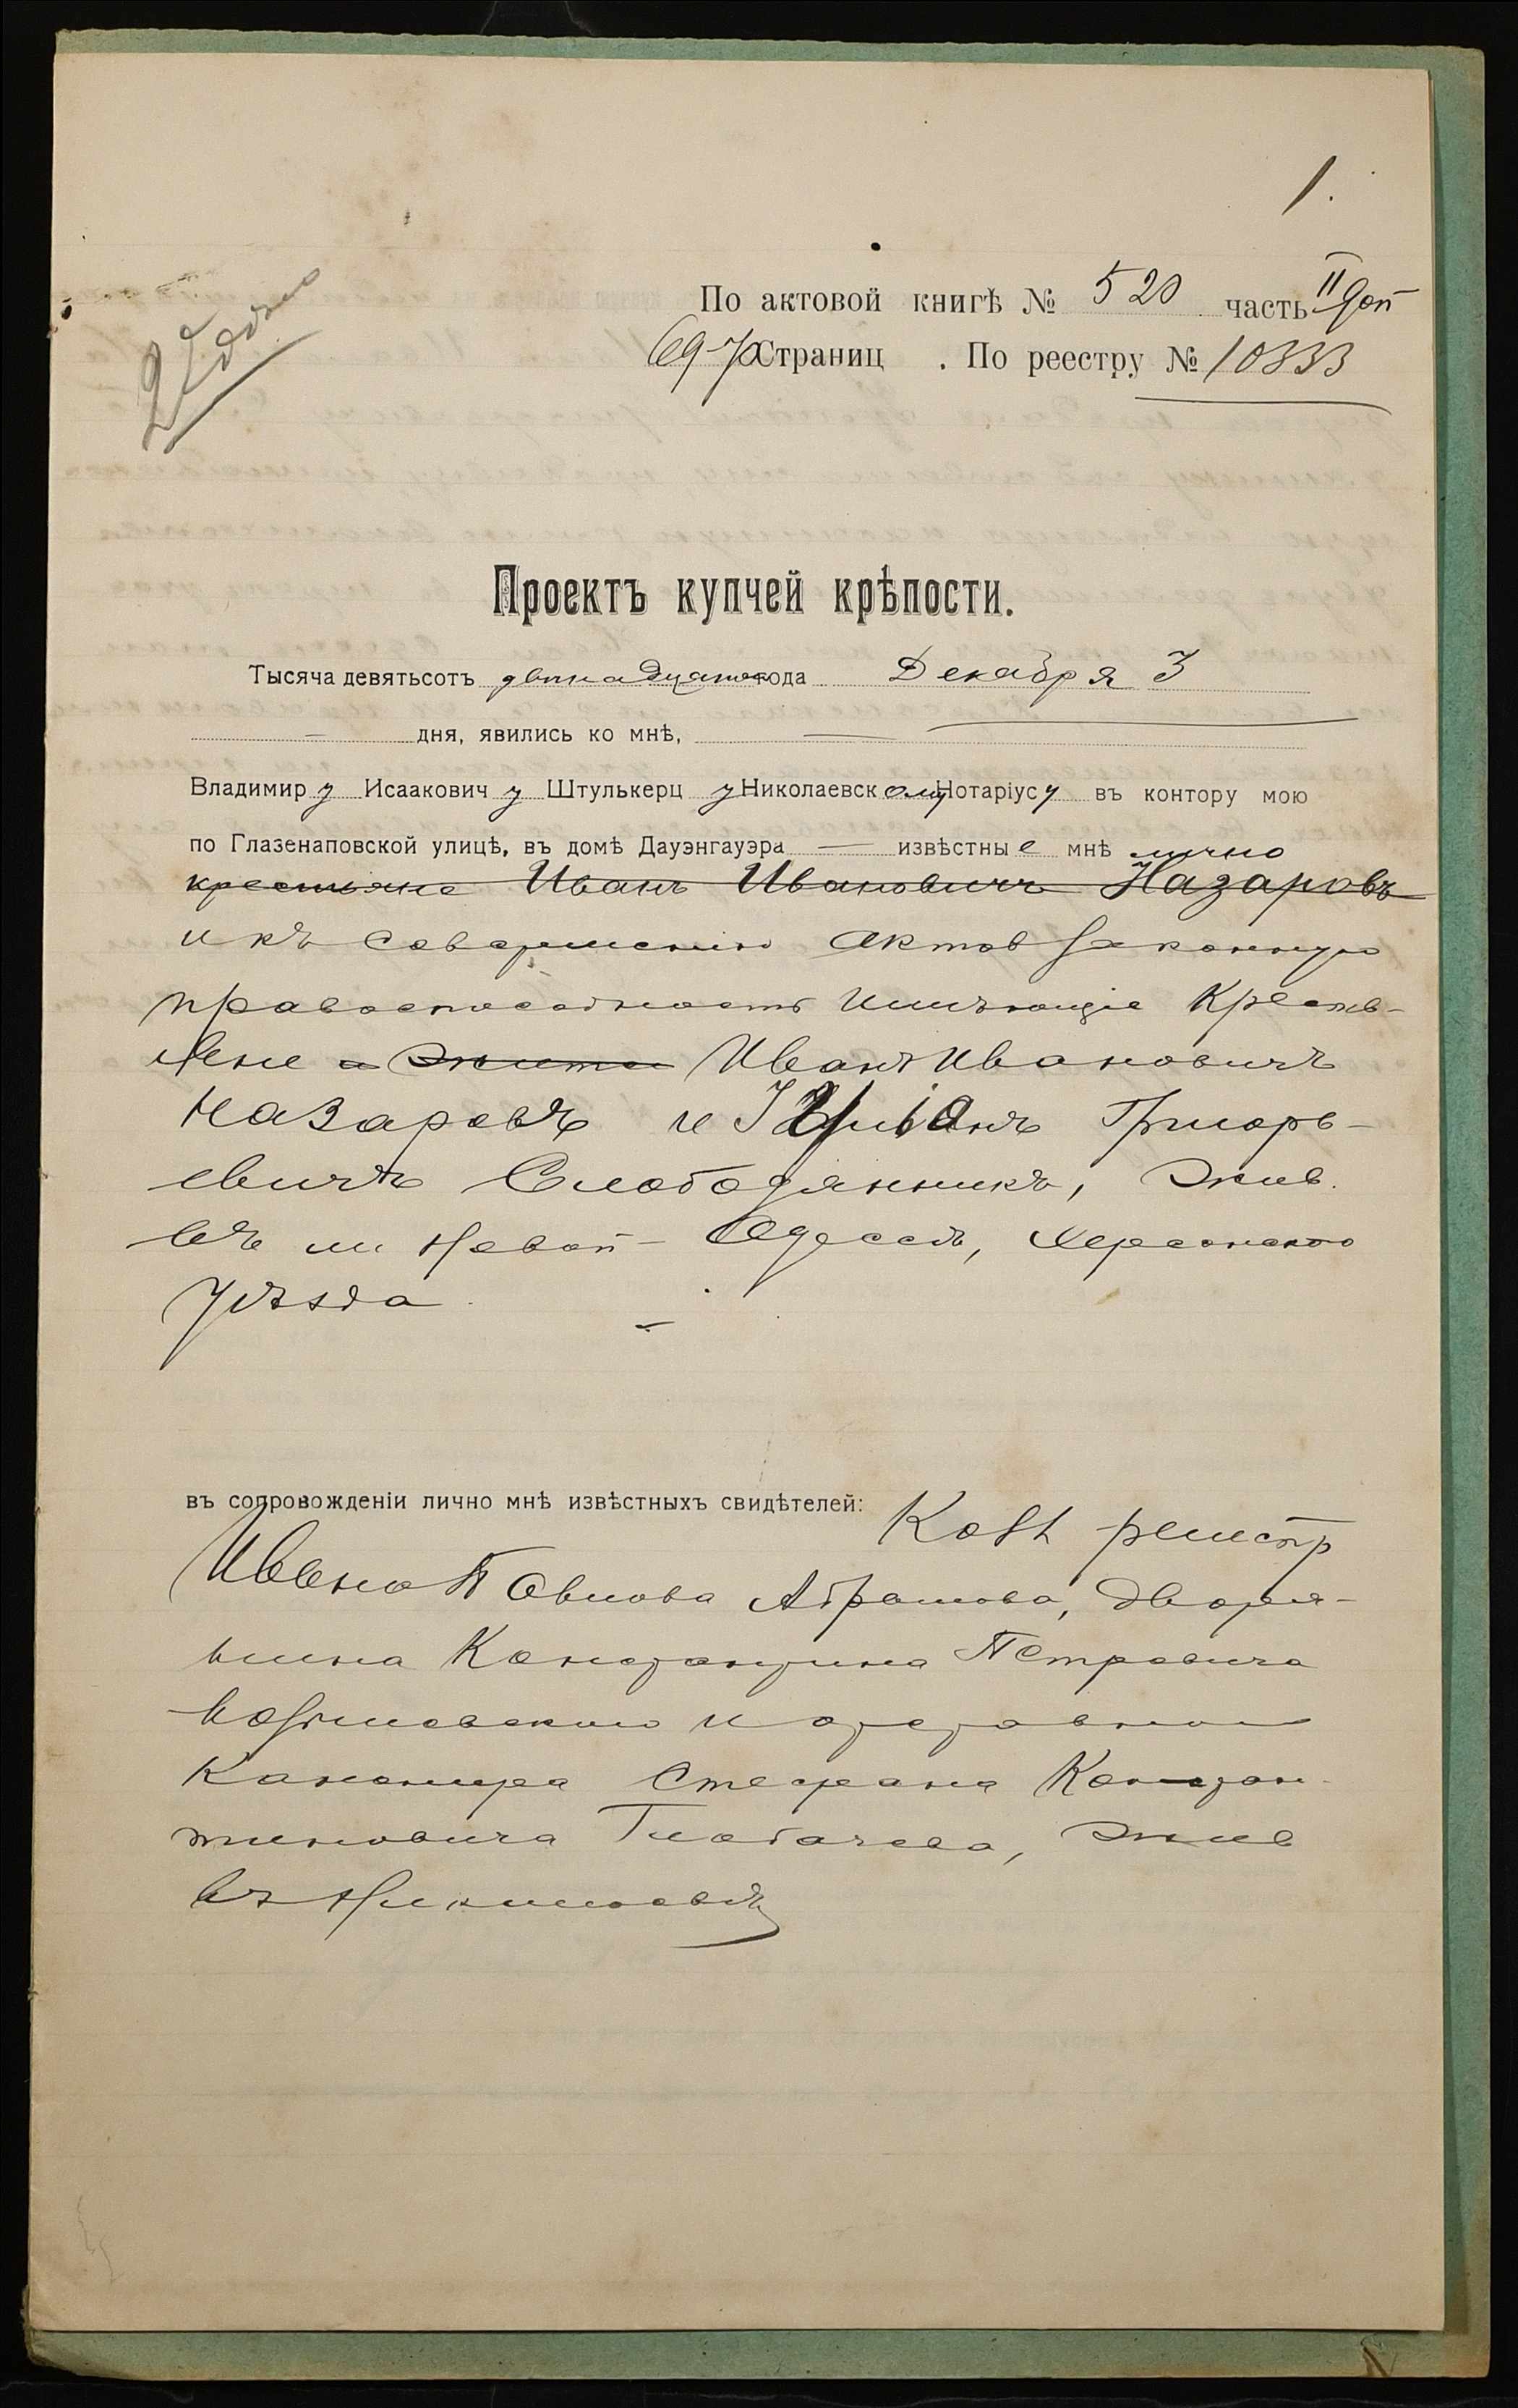 1.
По актовой книгѣ № 520 часть II доп
69-70 Страниц . По реестру № 10333
Проектъ купчей крѣпости.
Тысяча девятьсотъ двѣнадцатаго года Декабря 3
дня, явились ко мнѣ,
Владимиру Исааковичу Штулькерцу Николаевскому Нотаріусу въ контору мою
по Глазенаповской улицѣ, въ домѣ Дауэнгауэра — известные мнѣ лично
крестьяне Иванъ Ивановичъ Назаровъ
и къ совершенію актов законную
правоспособность имѣющіе Кресть-
яне Иванъ Ивановичъ
Назаровъ и Григорь-
евичъ Слободянникъ, жив.
въ м. Новой-Одессѣ, Херсонскаго
уѣзда.
въ сопровожденіи лично мнѣ извѣстныхъ свидѣтелей: Колл регистр
Ивана Абрамова, дворя-
нина Константина Петровича
и отставнои
Канонира Стефана Констан-
тиновича Глобачева, жив
въ Николаевѣ